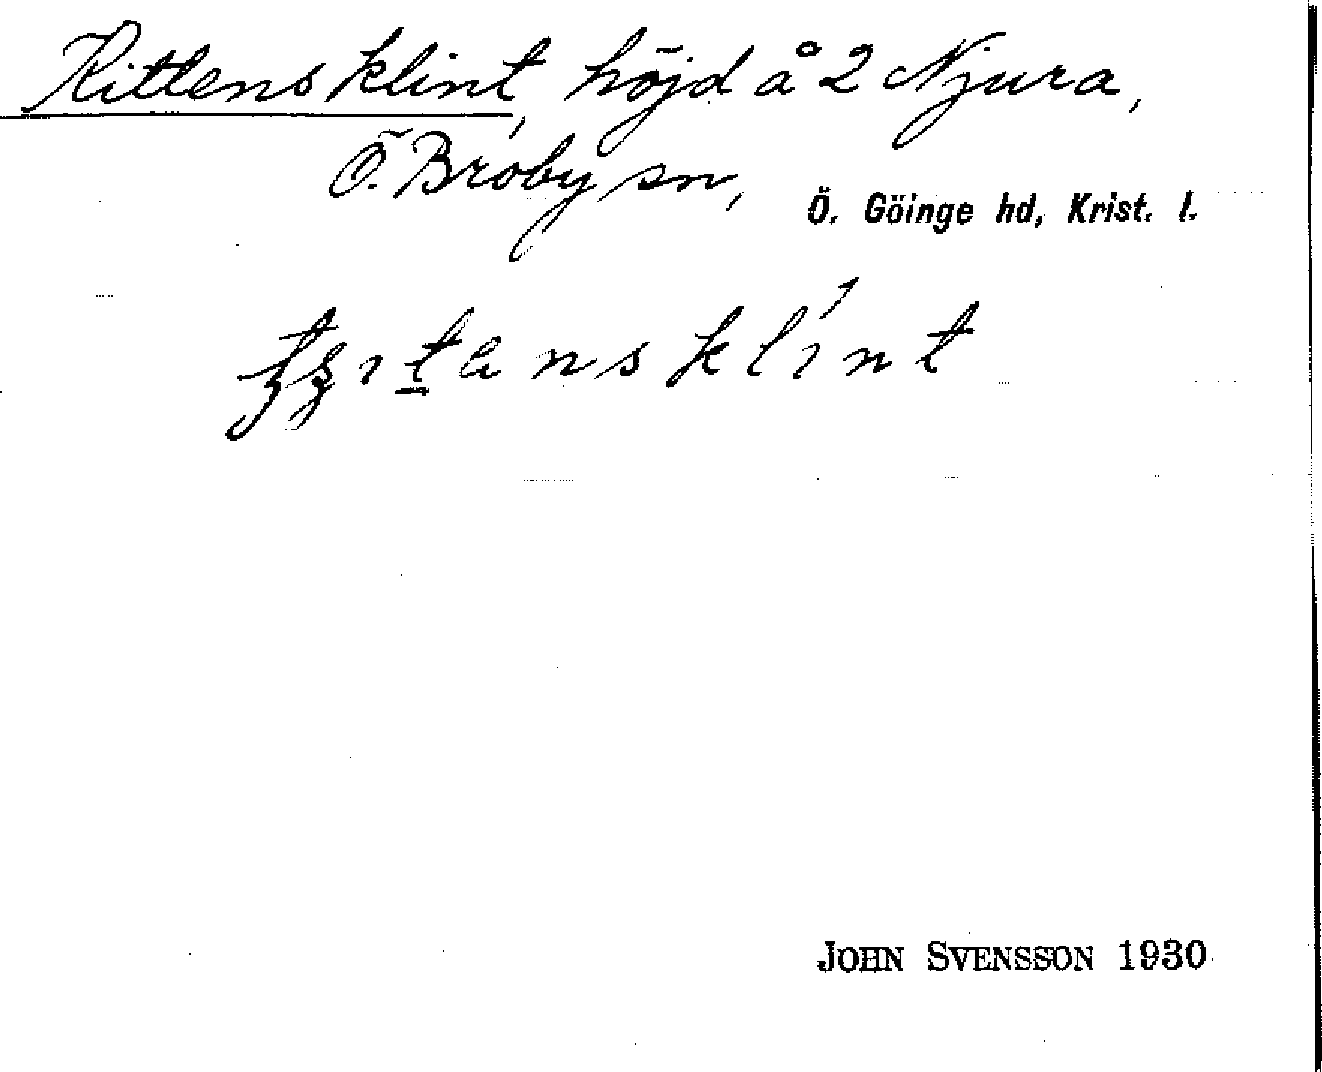 Kittens klint, höjd å 2 Njura,
Ö. Broby sn,
Ö. Göinge hd, Krist. l.
JOHN SVENSSON 1930